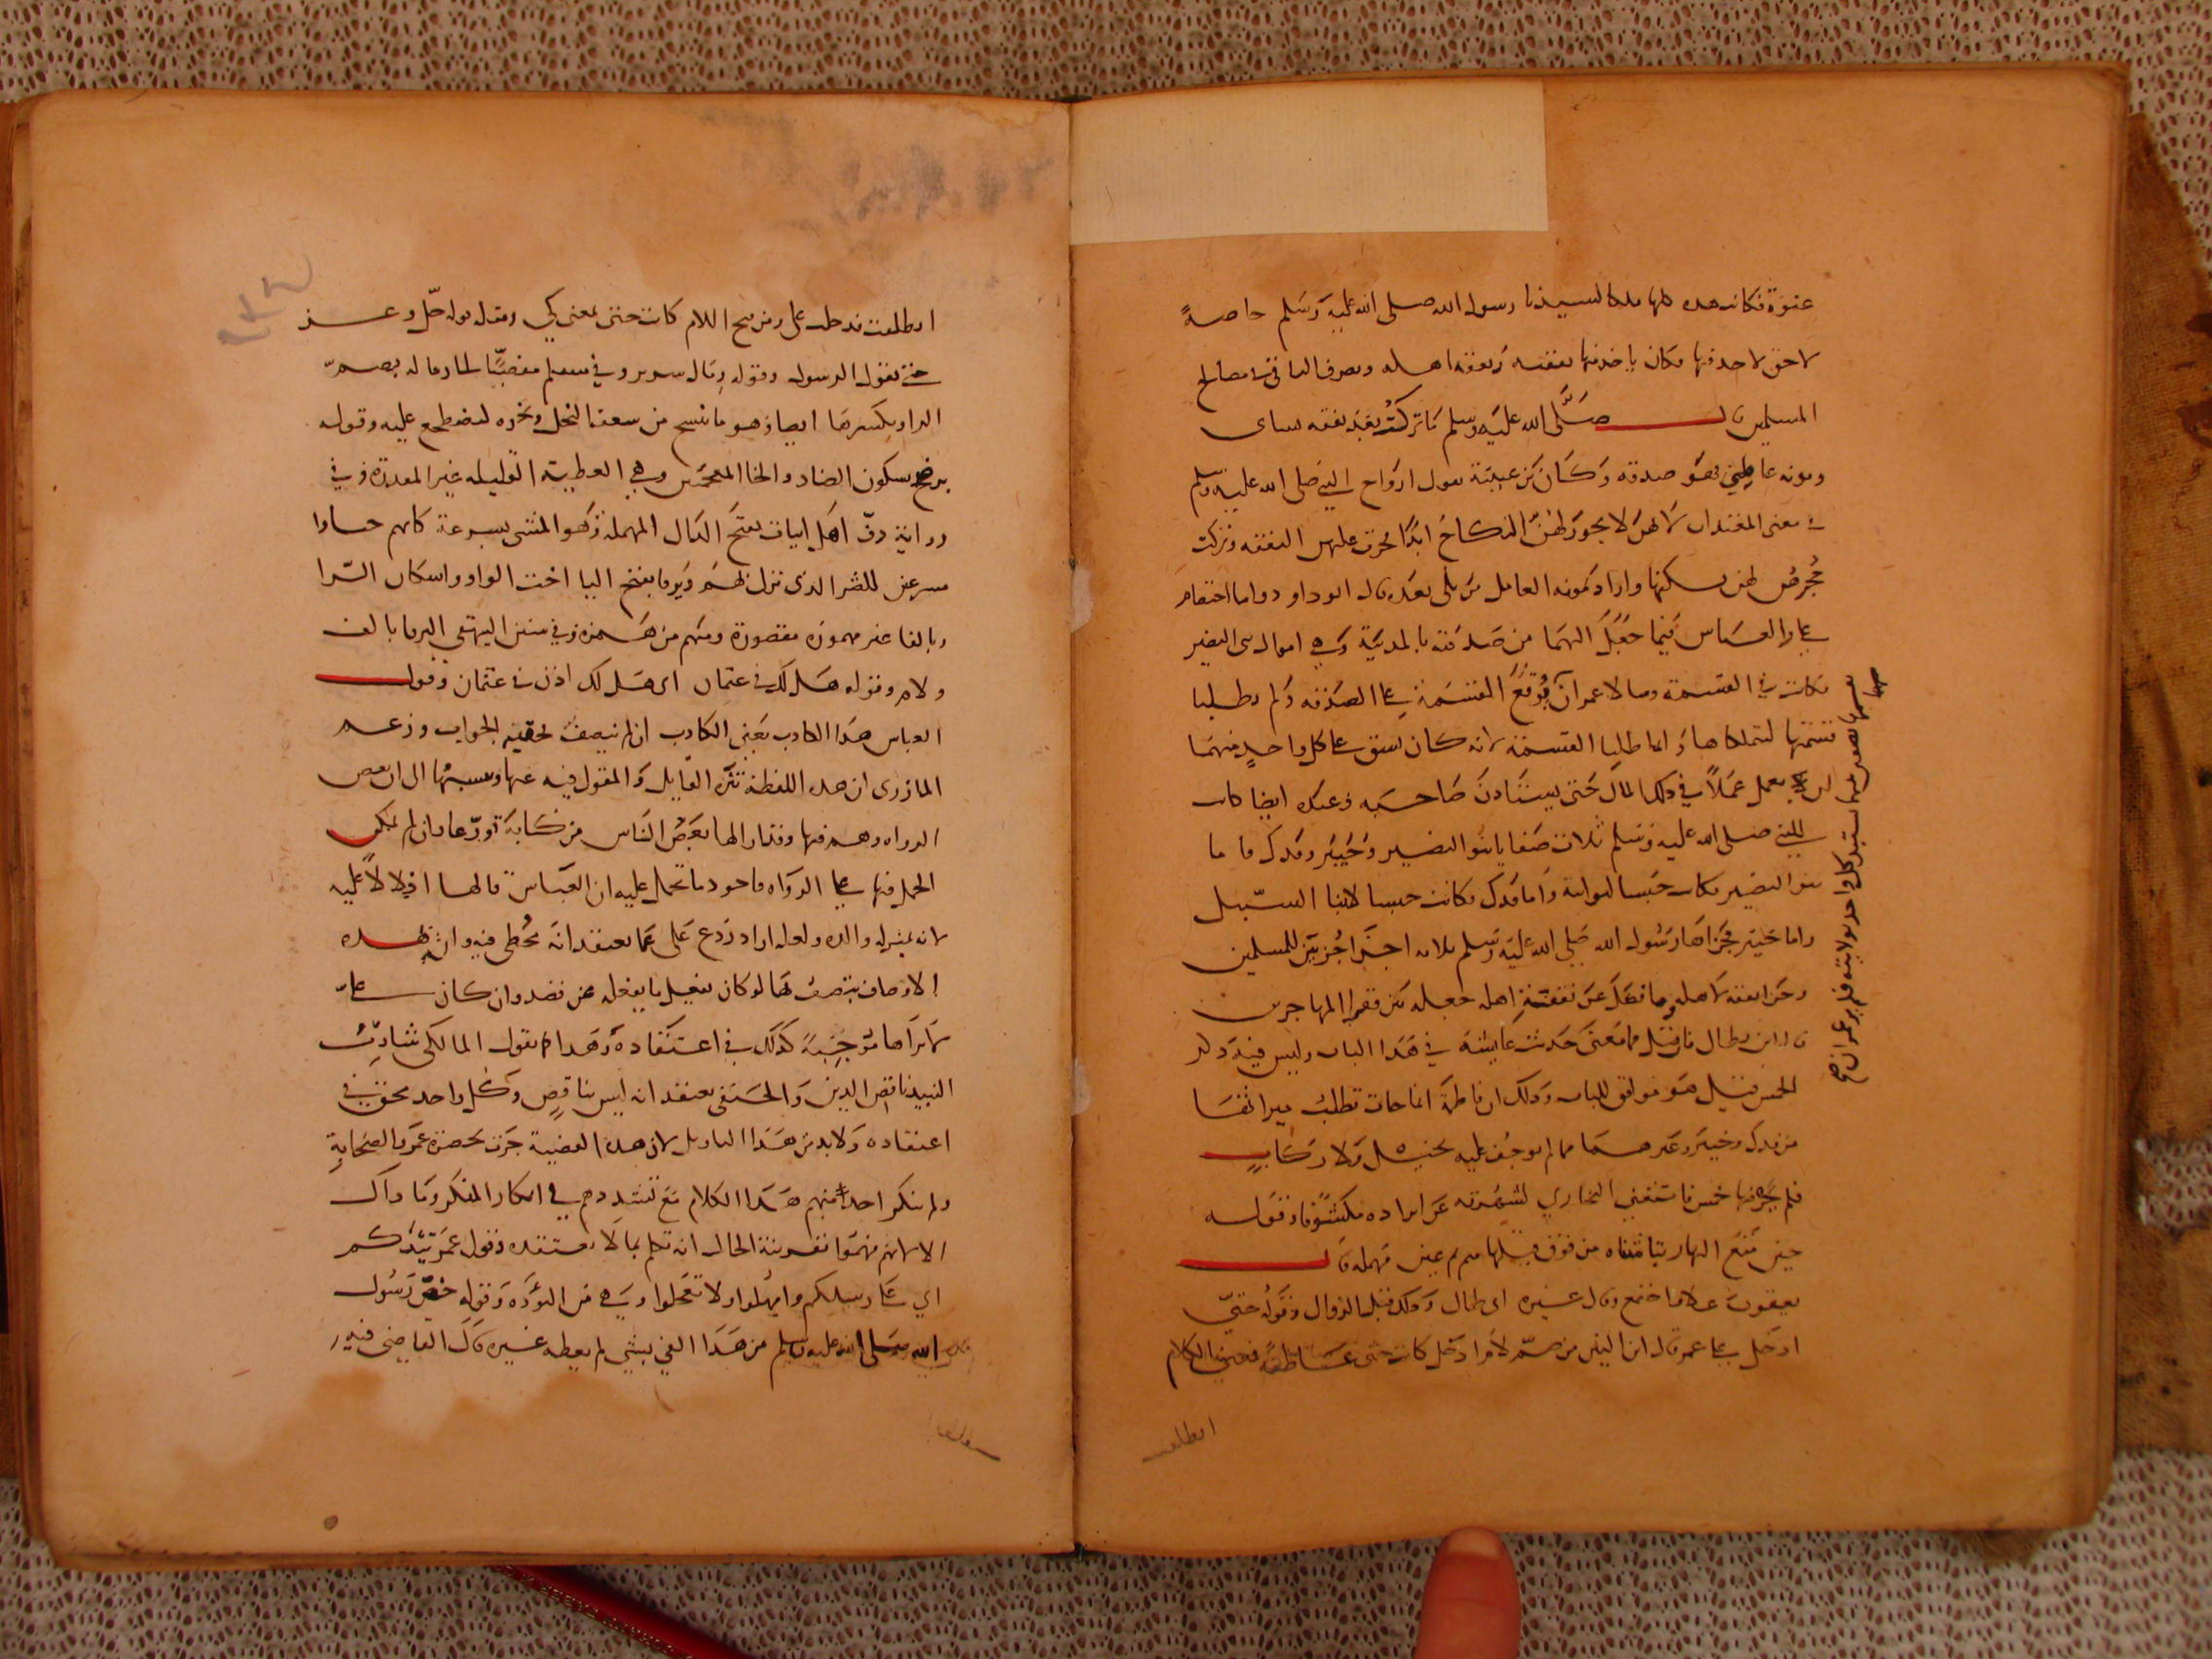 عنوة فكانت هذه كلها ملكا لسيدنا رسول الله صلى الله عليه وسلم خاصة
لا حق لاحد فيها فكان ياخذ منها نفقته ونفقة اهله ويصرف الباقي في مصالح
المسلمين قال صلى الله عليه وسلم ما تركت بعد نفقة نساى
ومونة عاملي فهو صدقة وكان بن عيينة يقول ازواج النبي صلى الله عليه وسلم
في معنى المعتدات لانهن لا يجوز لهن النكاح ابدا فجرت عليهن النفقة وتركت
حجرهن لهن يسكنها واراد بمونة العامل من يلى بعده قال ابو داود واما اختصام
علي والعباس فيما جعل اليهما من صدقته بالمدينة وهي اموال بنى النضير
فكانت في القسمة وسالا عمر ان يوقع القسمة على الصدقة ولم يطلبا
قسمتها ليتملكاها وانما طلبا القسمة لانه كان يشق على كل واحد منهما
ان لا يعمل عملا في ذلك المال حتى يستاذن صاحبه وعنده ايضا كانت
للنبي صلى الله عليه وسلم ثلاث صفايا بنو النضير وخيبر وفدك فاما
بنو النضير فكانت حبسا لنوائبه واما فدك فكانت حبسا لابنا السبيل
واما خيبر فجزاها رسول الله صلى الله عليه وسلم ثلاثه اجزا جزين للمسلمين
وجزا نفقة لاهله وما فضل عن نفقة اهله جعله بين فقرا المهاجرين
قال ابن بطال فان قيل فما معنى حديث عايشة في هذا الباب وليس فيه ذكر
الخمس قيل هو موافق للباب وذلك ان فاطمة انما جات تطلب ميراثها
من فدك وخيبر وغيرهما مما لم يوجف عليه بخيل ولا ركاب
فلم يجر فيها خمس فاستغنى البخاري لشهرته عن ايراده مكشوفا وقوله
حين متع النهار بتا مثناه من فوق قبلها ميم ثم عين مهملة قال
يعقوب علا واجتمع وقال غيره اى طال وذلك قبل الزوال وقوله حتى
ادخل على عمر قال ابن التين من ضم لام ادخل كانت حتى عاطفة فمعنى الكلام
انطلقت
سهما بعضهم عليهما استبد كل واحد بولايته فلم ير عمر ان
انطلقت فدخلت على ومن فتح اللام كانت حتى بمعنى كي ومثله قوله جل وعز
حتى يقول الرسول وقوله رمال سرير وفي مسلم مفضيا الى رماله بضم
الرا وبكسرها ايضا وهو ما ينسج من سعف النخل ونحوه ليضطجع عليه وقوله
برضخ بسكون الضاد والخا المعجمتين وهي العطية القليلة غير المقدرة وفي
رواية دف اهل ابيات بفتح الدال المهملة وهو المشى بسرعة كانهم جاوا
مسرعين للضر الذى نزل بهم ويرفا بفتح اليا اخت الواو واسكان الرا
وبالفا غير مهموز مقصورة ومنهم من همزه وفي سنن البيهقى اليرفا بالف
ولام وقوله هل لك في عثمان اى هل لك اذن في عثمان وقول
العباس هذا الكاذب يعنى الكاذب ان لم ينصف فحذف الجواب وزعم
المازرى ان هذه اللفظة تنزه القايل والمقول فيه عنها وينسبها الى ان بعض
الرواه وهم فيها وقد ازالها بعض الناس من كتابه تورعا وان لم يكن
الحمل فيها على الرواه فاجود ما تحمل عليه ان العباس قالها ادلالا عليه
لانه بمنزلة والده ولعله اراد ردع على عما يعتقد انه مخطى فيه وان هذه
الاوصاف يتصف بها لو كان يفعل ما يفعله عن قصد وان كان علي
لا يراها موجبة لذلك في اعتقاده وهذا كما يقول المالكى شارب
النبيذ ناقص الدين والحنفى يعتقد انه ليس بناقص وكل واحد محق في
اعتقاده ولا بد من هذا التاويل لان هذه القضية جرت بحضرة عمر والصحابة
ولم ينكر احد منهم هذا الكلام مع تشددهم في انكار المنكر وما ذاك
الا لانهم فهموا بقرينة الحال انه تكلم بما لا يعتقده وقول عمر تيدكم
اي على رسلكم وامهلوا ولا تعجلوا وهي من التؤدة وقوله خص رسول
الله صلى الله عليه وسلم من هذا الفي بشي لم يعطه غيره قال القاضى فيه